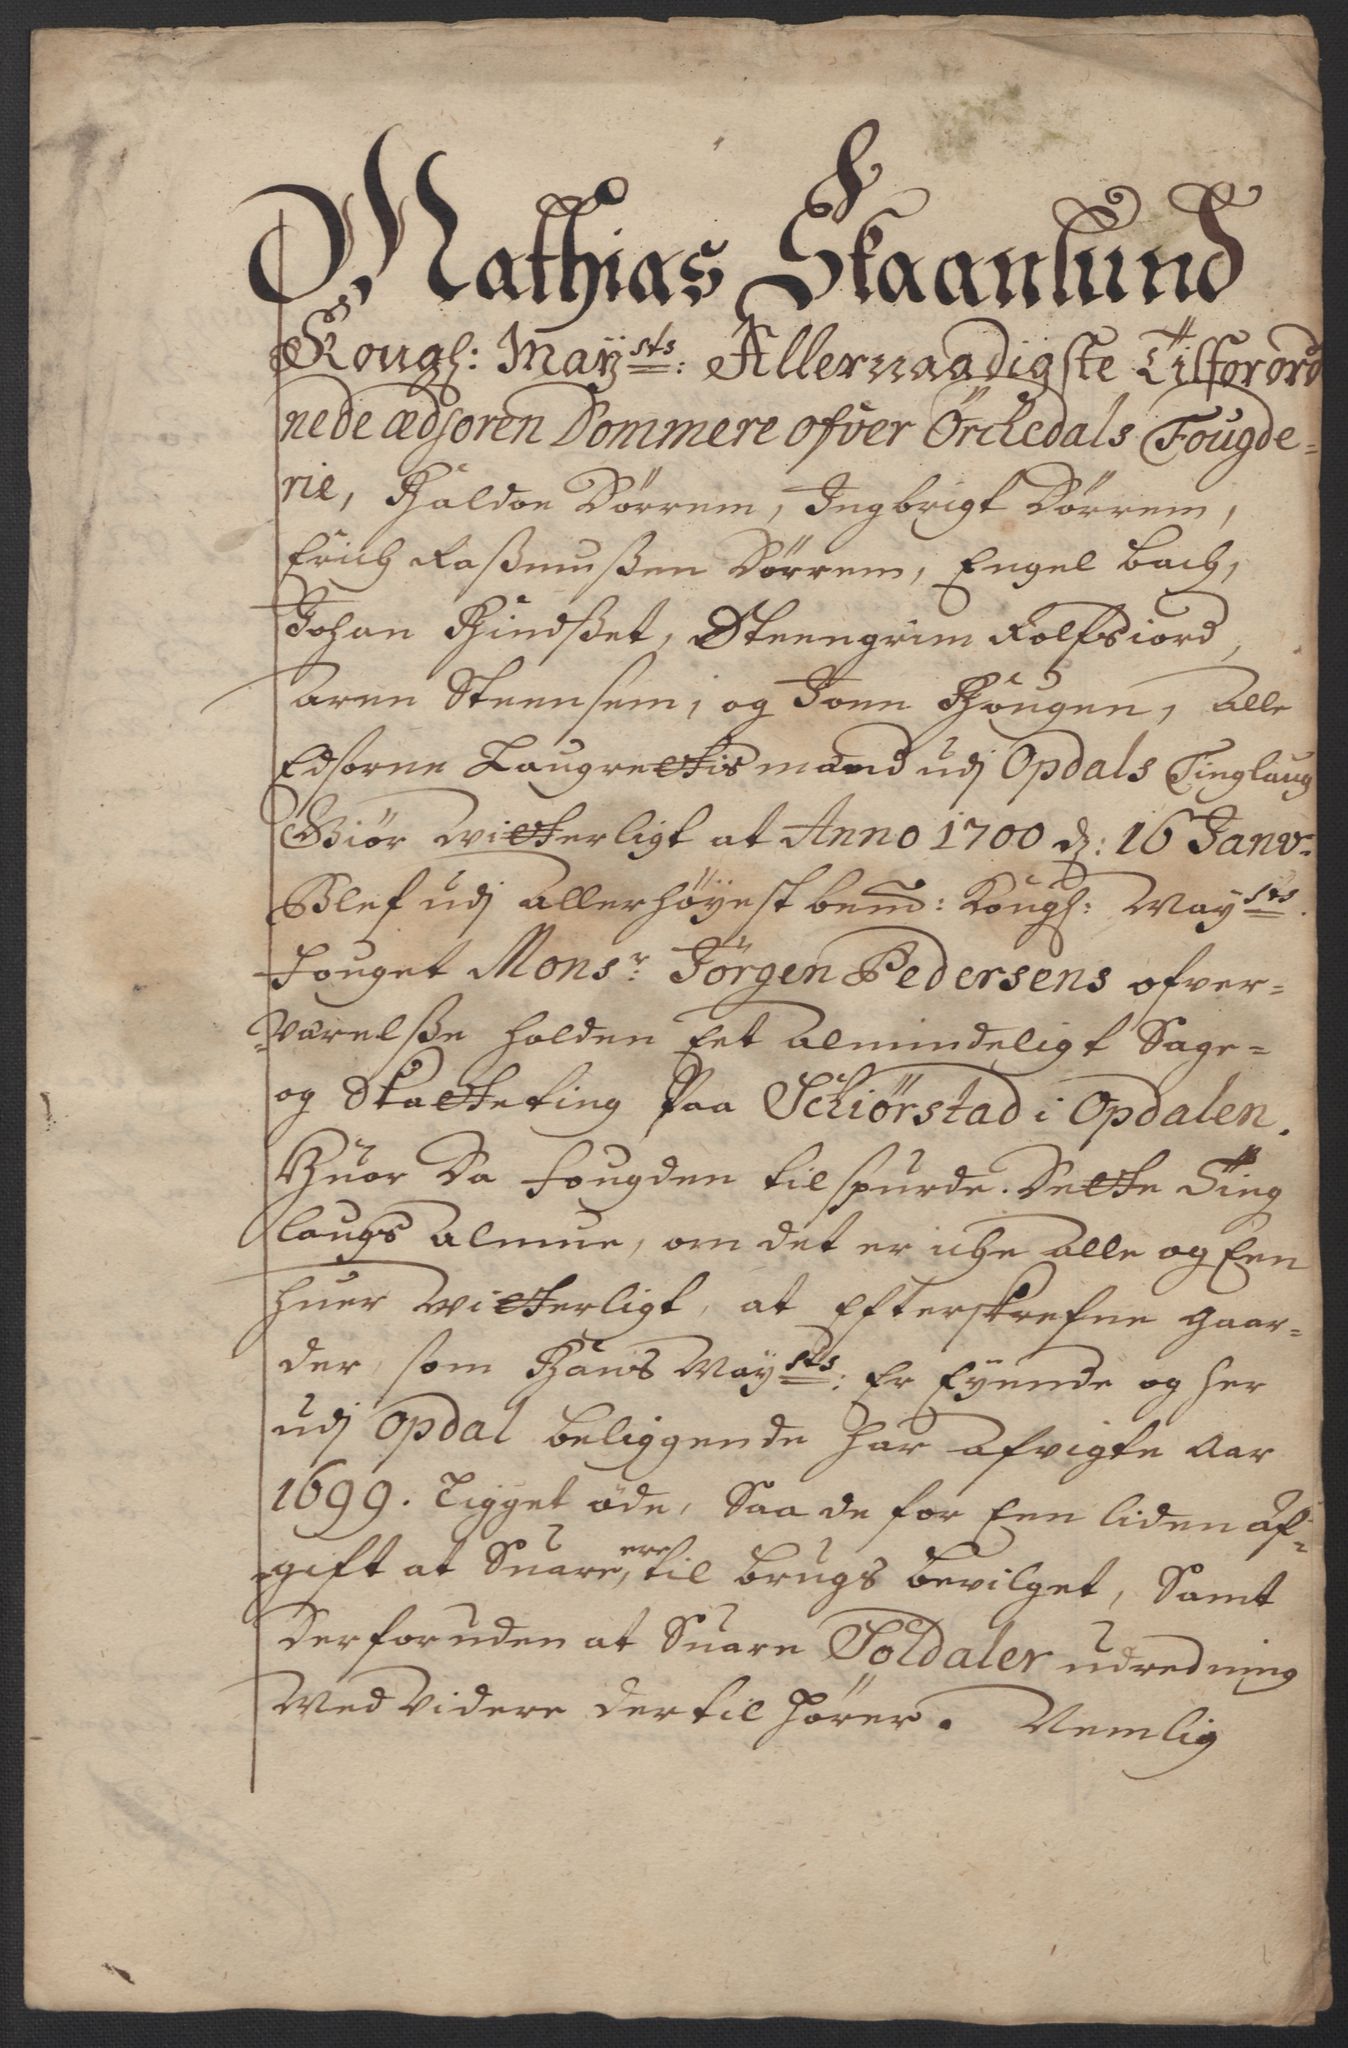 Mathias Skaanlund
Kongl: Maÿ:sts: Allernaadigste Tilforord
nede ædsoren Dommere ofver Örckedals Fougde-
rie, Haldoe Dørrem, Ingbrigt Dørrem,
Erich Raßmußen Dørrem, Engel bach,
Johan Hindßet, Steengrim Rolfsiord,
aren Steensem, og Joen Hougen, alle
Edsorne Laugrettis mænd udj Opdals Tinglaug
Giør witterligt at Anno 1700 d: 16 Janv:
Blef udj allerhøyest bem: Kongl: Maysts.
Fouget Monsr: Jörgen Pedersens ofver-
værelße holden Eet almindeligt Sage-
og Skatteting paa Schiörstad i Opdalen.
Huor da fougden tilspurde. dette Ting
laugs almue, om det er iche alle og Een
huer witterligt, at Efterskrefne gaar-
der, som Hans Maysts: Er Eyende og her
udj Opdal beliggende har afvigte aar
1699. Ligget øde, Saa de for Een liden af-
gift at Suare, ere til brugs bevilget, Samt
derforuden at Suare Soldater udredning
Med videre dertil hører. Nemlig